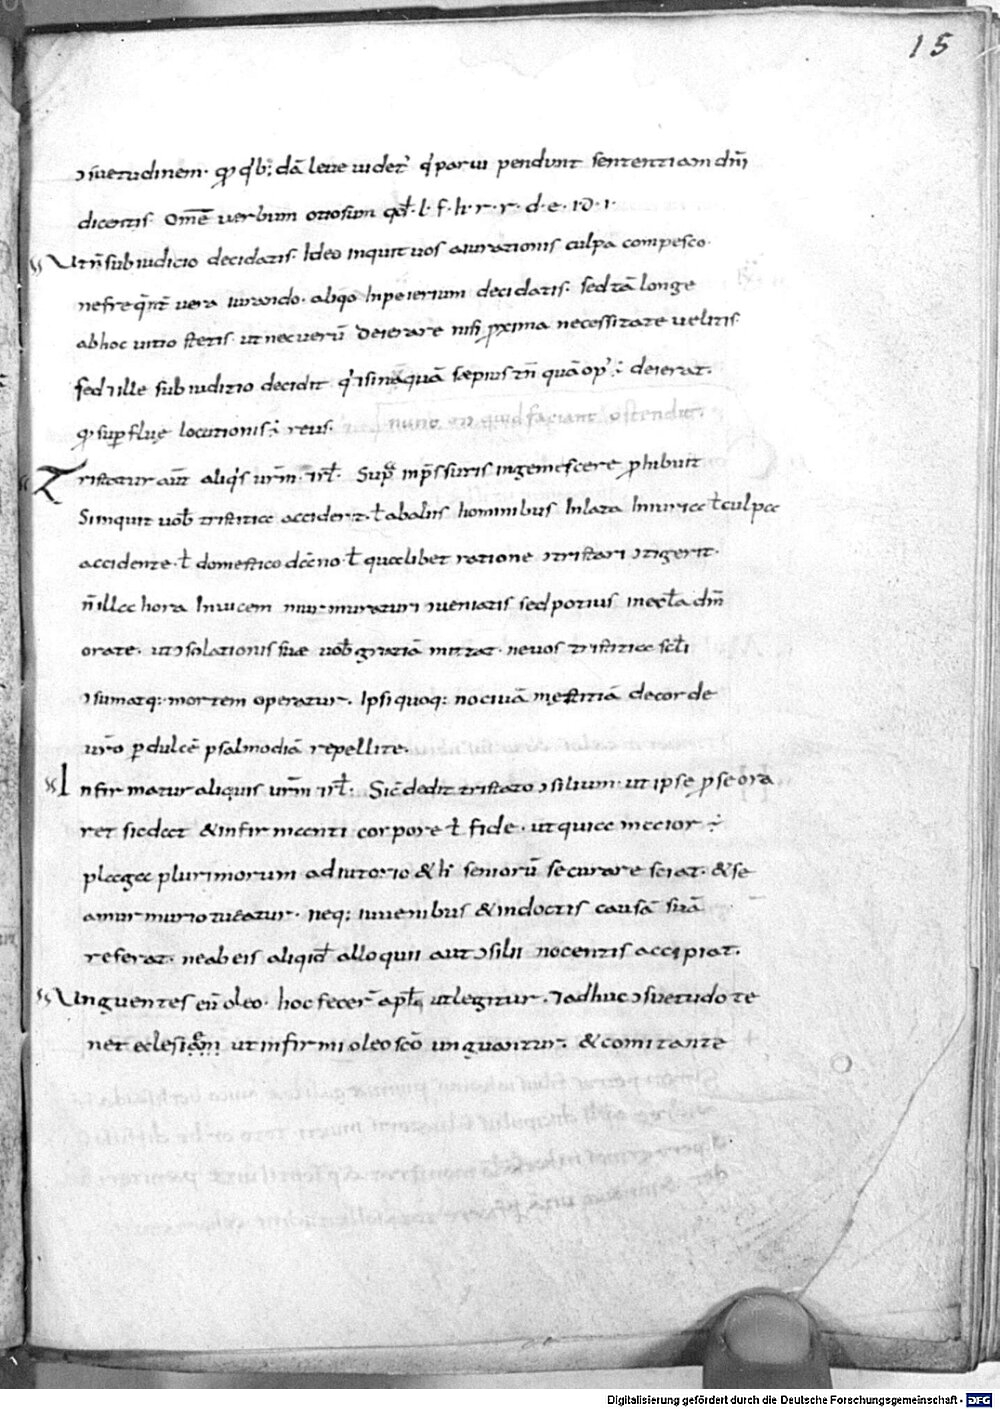 15
ɔsuetudinem. qđ qͥbꝫdā leue uidet᷑ qͥ parui pendunt sententiam dn̄i
dicentis. Om̄e uerbum otiosum qđ. l. f. h. r. r. d. e. i. d. i.
Ut n̄ sub iudicio decidatis. Ideo inquit uos a iurationis culpa compesco.
ne frequent̄ uera iurando. aliqͦ In peierium decidatis. sed tā longe
ab hoc uitio stetis. ut nec uerū deierare nisi ꝓxima necessitate uelitis.
sed ⁊ ille sub iuditio decidit qͥ
sæpius tn̄ quā opꝰ ÷ deierat.
qͥ suꝑfluę locutionis ÷ reus.
nunc quid faciant ostendit
Tristatur aut̄ aliqͥs ur̄m. ⁊rł. Supͣ In p̄ssuris ingemescere ꝓhibuit
Si inquit uob̄ tristitia acciderit. ł ab aliis hominibus Inlata Iniuria ł culpa
accidente. ł domestico dāno. ł qualibet ratione ɔtristari ɔtigerit.
n̄ illa hora Inuicem murmuraturi ɔueniatis sed potius in ecła dn̄m
orate. ut ɔsolationis suæ uob̄ gratiā mittat. ne uos tristitia scłi
ɔsumatqꝫ mortem operatur. Ipsi quoqꝫ nociuā męstitiā de corde
ur̄o ꝑ dulcē psalmodiā repellite.
Infirmatur aliquis ur̄m ⁊rł. Sic̄ dedit tristato ɔsilium. ut ipse ꝓ se ora
ret sic dat & infirmanti corpore ł fide. ut quia maior ÷
plaga plurimorum adiutorio & h̄ seniorū se curare sciat. & se
neqꝫ iuuenibus & indoctis causā suā
referat. ne ab eis aliqͥd alloquii aut ɔsilii nocentis accipiat.
Unguentes eū oleo. hoc fecer̄ apłi ut legitur. ⁊ adhuc ɔsuetudo te
net eclesię ut infirmi oleo scō unguantur. & comitante
Digitalisierung gefördert durch die Deutsche Forschungsgemeinschaft - DFG